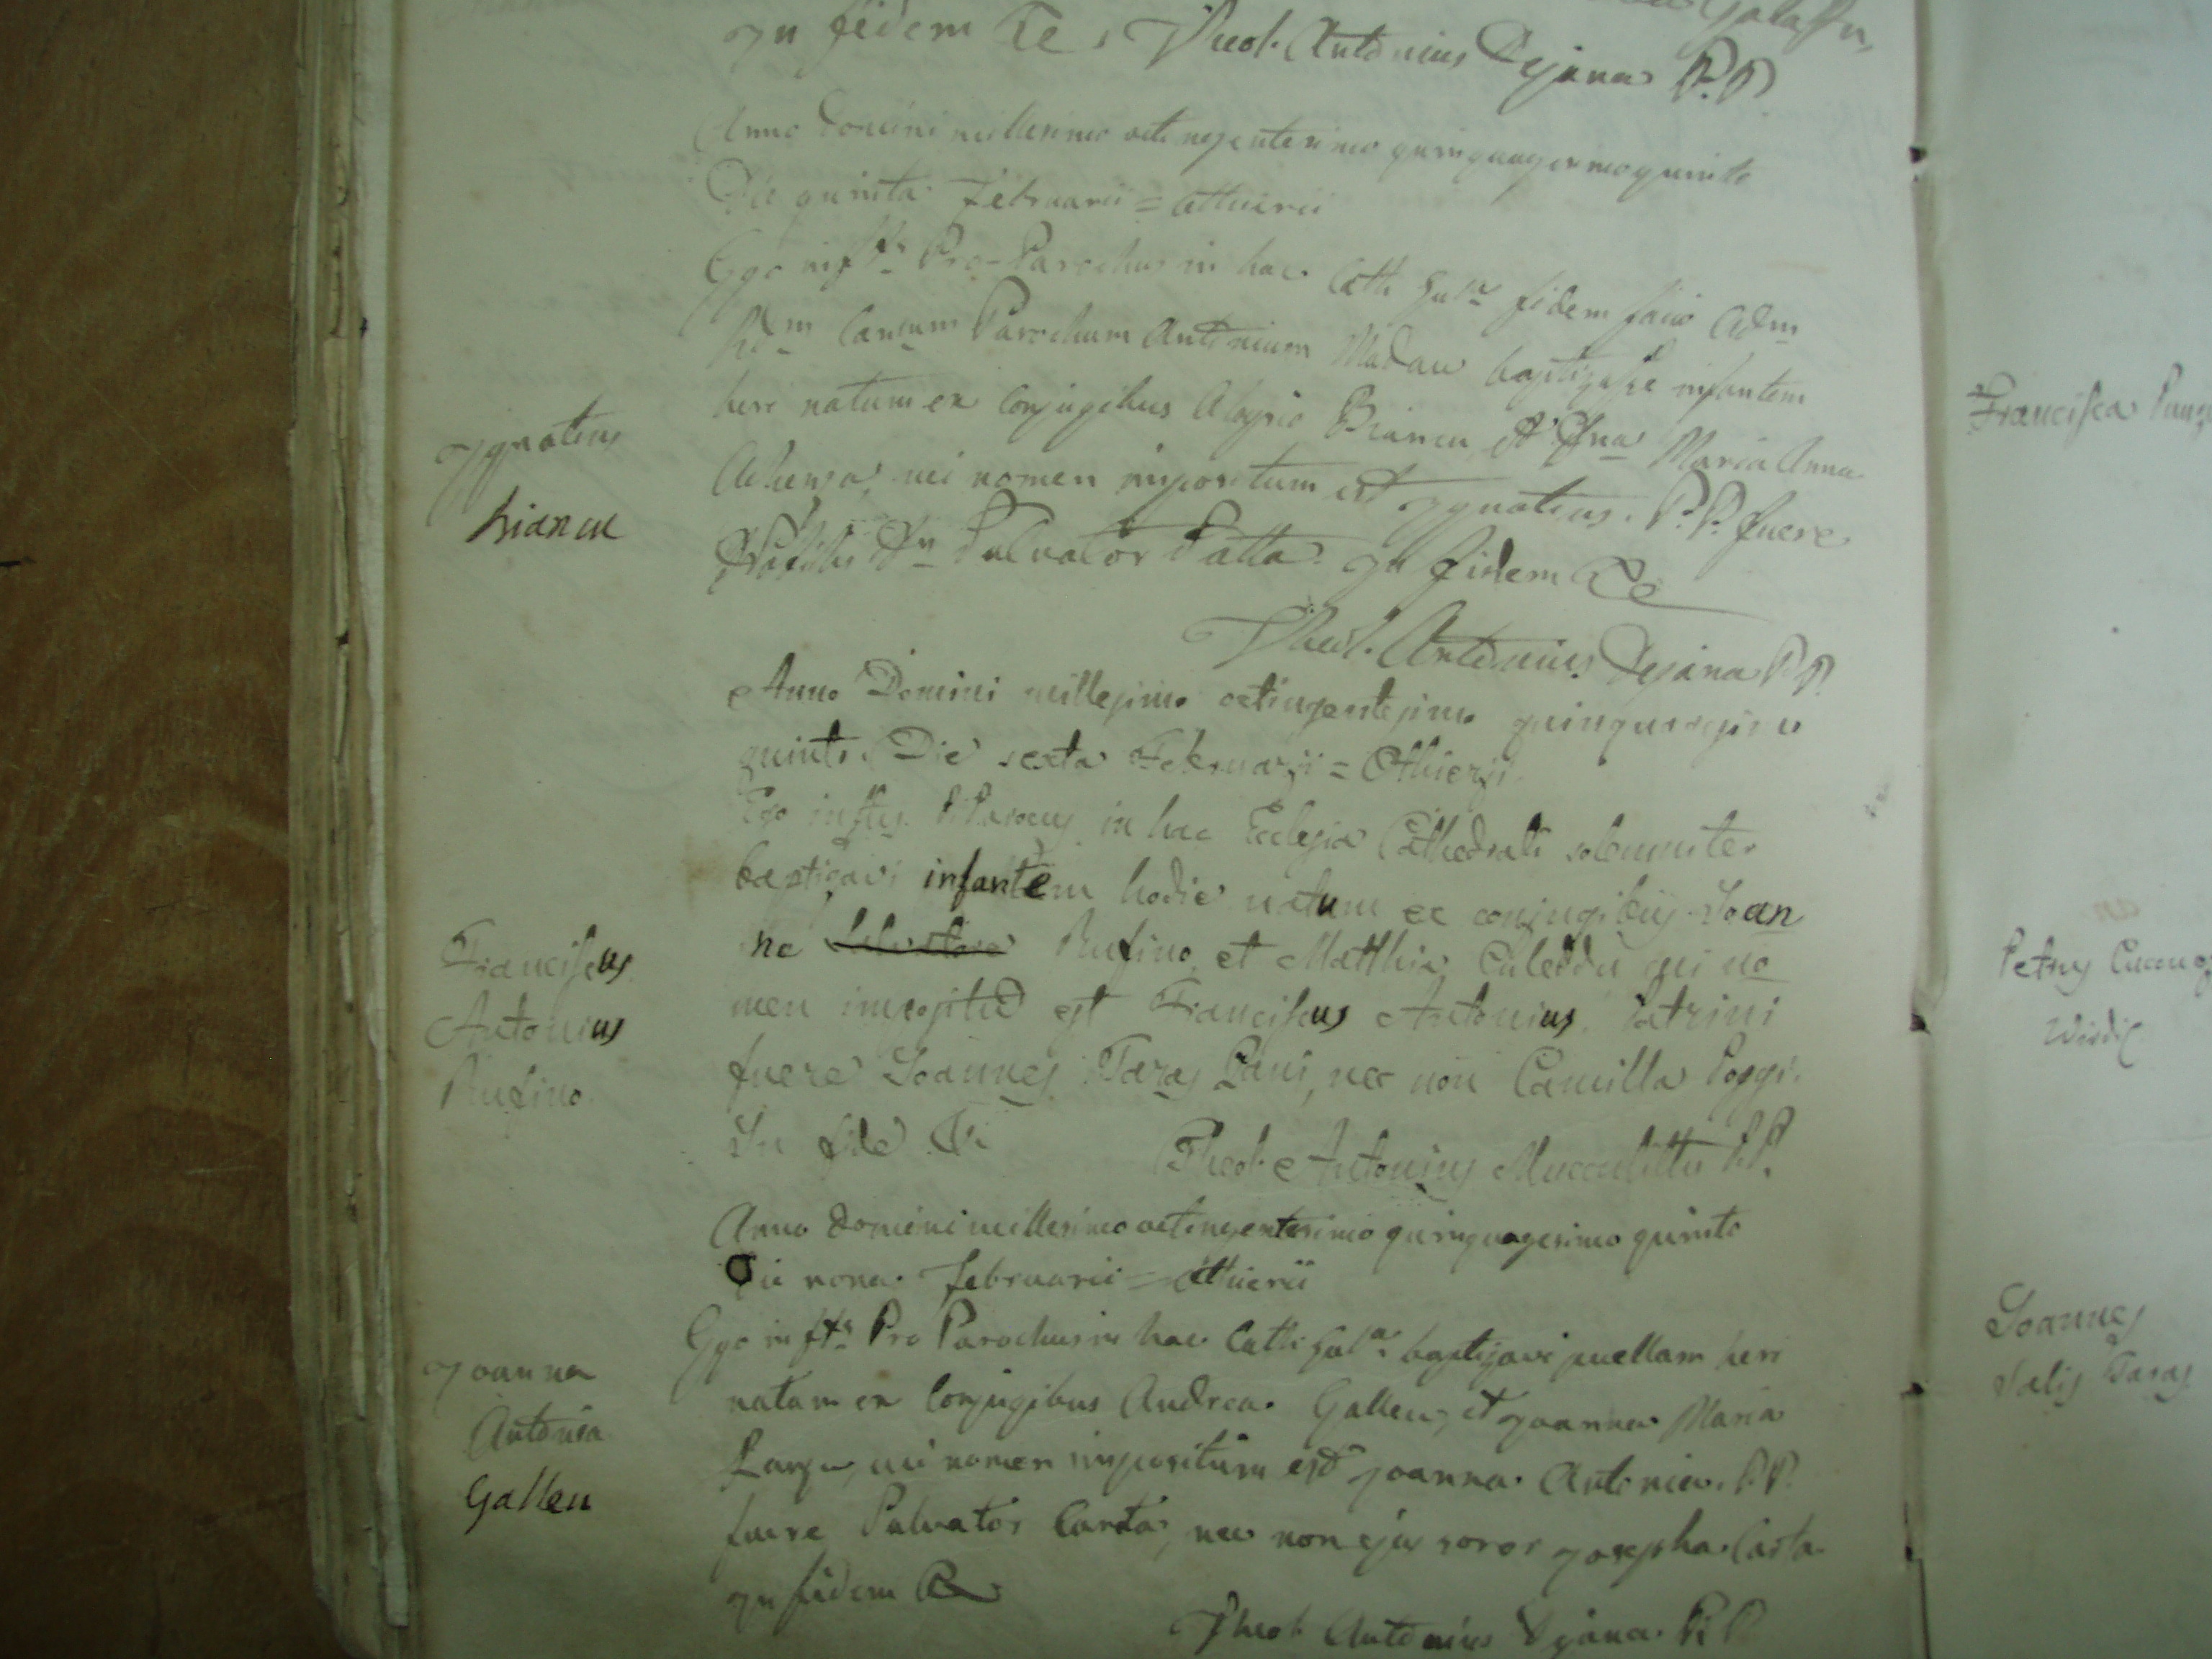 In fidem &c. Theol. Antonius Dejana P. P.
Anno Domini millesimo octingentesimo quinquagesimo quinto
Die quinta Februarii = Otthierii
Ego inftus Pro-Parochus in hac Cath fidem facio Adm
Rdum Canum Parochum Antonium Madau baptizasse infantem
here natum ex Conjugibus Aloysio Biancu et Dna Maria Anna
cui nomen impositum est Ignatius. P. P. fuere
Nobilis Dn Salvator Satta. In fidem &c
Theol. Antonius Dejana P. P.
Ignatius
Biancu
Anno Domini millesimo octingentesimo quinquagesimo
quinto. Die sexta Februarii = Otthierii
Ego inftus P. Parocus in hac Eclesia Cathedrali solemniter
baptizavi infantem hodie natum ex conjugibus Joan
ne Rufino, et Matthia Culeddu cui no
men impositũ est Franciscus Antonius. Patrini
fuere Joannes Taras Pani, nec non Camilla Poggi.
In fide &
Theol. Antonius Muccululittu P. P.
Franciscus
Antonius
Rufino
Anno Domini millesimo octingentesimo quinquagesimo quinto
Die nona Februarii = Otthierii
Ego inftus Pro Parochus in hac Cath baptizavi puellam heri
natam ex Conjugibus Andrea Galleu, et Joanna Maria
cui nomen impositum est Joanna Antonia. P. P.
fuere Salvator Carta, nec non ejus soror Josepha Carta
In fidem &
Theol. Antonius Dejana P. P.
Joanna
Antonia
Galleu
Francisca
Petrus
Joannes
Salis Taras